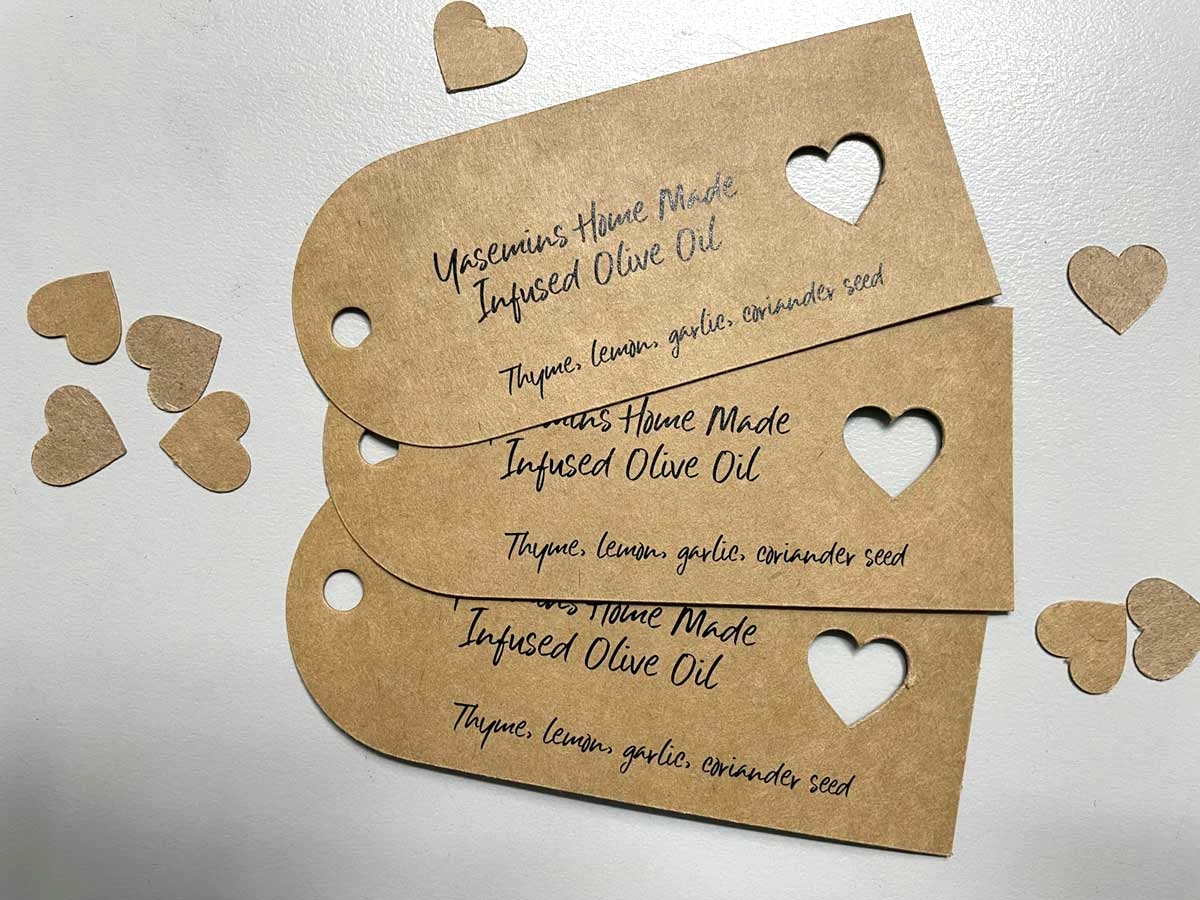 Yasemins Home Made
Infused Olive Oil
Thyme, lemon, garlic, coriander seed
Home Made
Infused Olive Oil
Thyme, lemon, garlic, coriander seed
Home Made
Infused Olive Oil
Thyme, lemon, garlic, coriander seed